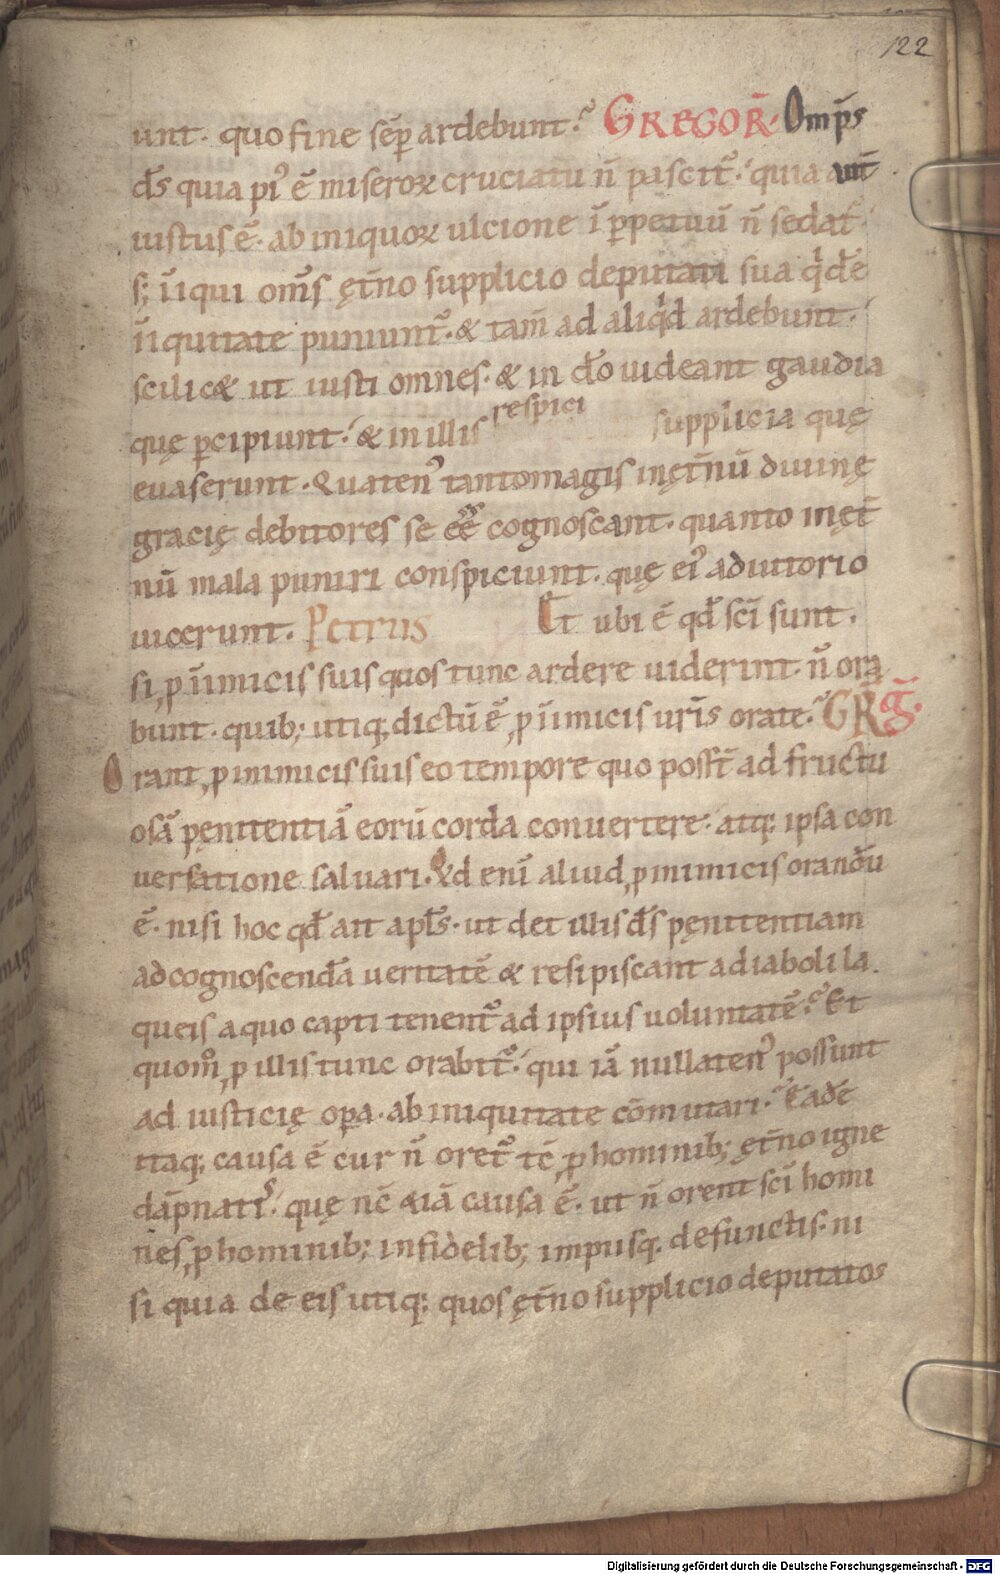 122
unt. quo fine sēp ardebunt. GREGOR̄. Omp̄s
d̄s quia pi᷒ ē miseroꝝ cruciatu n̄ pascit᷑. quia aut̄
iustus ē. ab iniquoꝝ ulcione ī ꝑpetuū n̄ sedat᷑.
s; īiqui om̄s ęt̄no supplicio deputati sua q'dē
īiquitate puniunt᷑. & tam̄ ad aliq'd ardebunt.
scilic& ut iusti omnes. & in dō uideant gaudia
quę ꝑcipiunt. & in illis respici supplicia quę
euaserunt. Quaten᷒ tanto magis in ęt̄nū diuinę
gracię debitores se eēē cognoscant. quanto in ęt̄
nū mala puniri conspiciunt. quę ei᷒ adiutorio
uicerunt. Petrus Et ubi ē qđ sc̄i sunt.
si, p īimicis suis quos tunc ardere uiderint. n̄ ora
bunt. quib; utiq; dictū ē, p īimicis ur̄is orate. GRḠ.
Orant, p inimicis suis eo tempore quo posst̄ ad fructu
osā pęnitentiā eorū corda conuertere. atq; ipsa con
uersatione saluari. Qd enī aliud, p inimicis orandū
ē. nisi hoc qđ ait apl̄s. ut det illis d̄s pęnitentiam
ad cognoscendā ueritatē & resipiscant a diaboli la
queis a quo capti tenent᷑ ad ipsius uoluntatē. Et
quom̊, p illis tunc orabit᷑. qui iā nullaten᷒ possunt
ad iusticię oꝑa. ab iniquitate cōmutari. Eadē
itaq; causa ē cur n̄ oret᷑ tc̄, p hominib; ęt̄no igne
dāpnatis. quę nc̄ &iā causa ē. ut n̄ orent sc̄i homi
nes, p hominib; infidelib; impiisq. defunctis. ni
si quia de eis utiq; quos ęt̄no supplicio deputatos
Digitalisierung gefördert durch die Deutsche Forschungsgemeinschaft - DFG